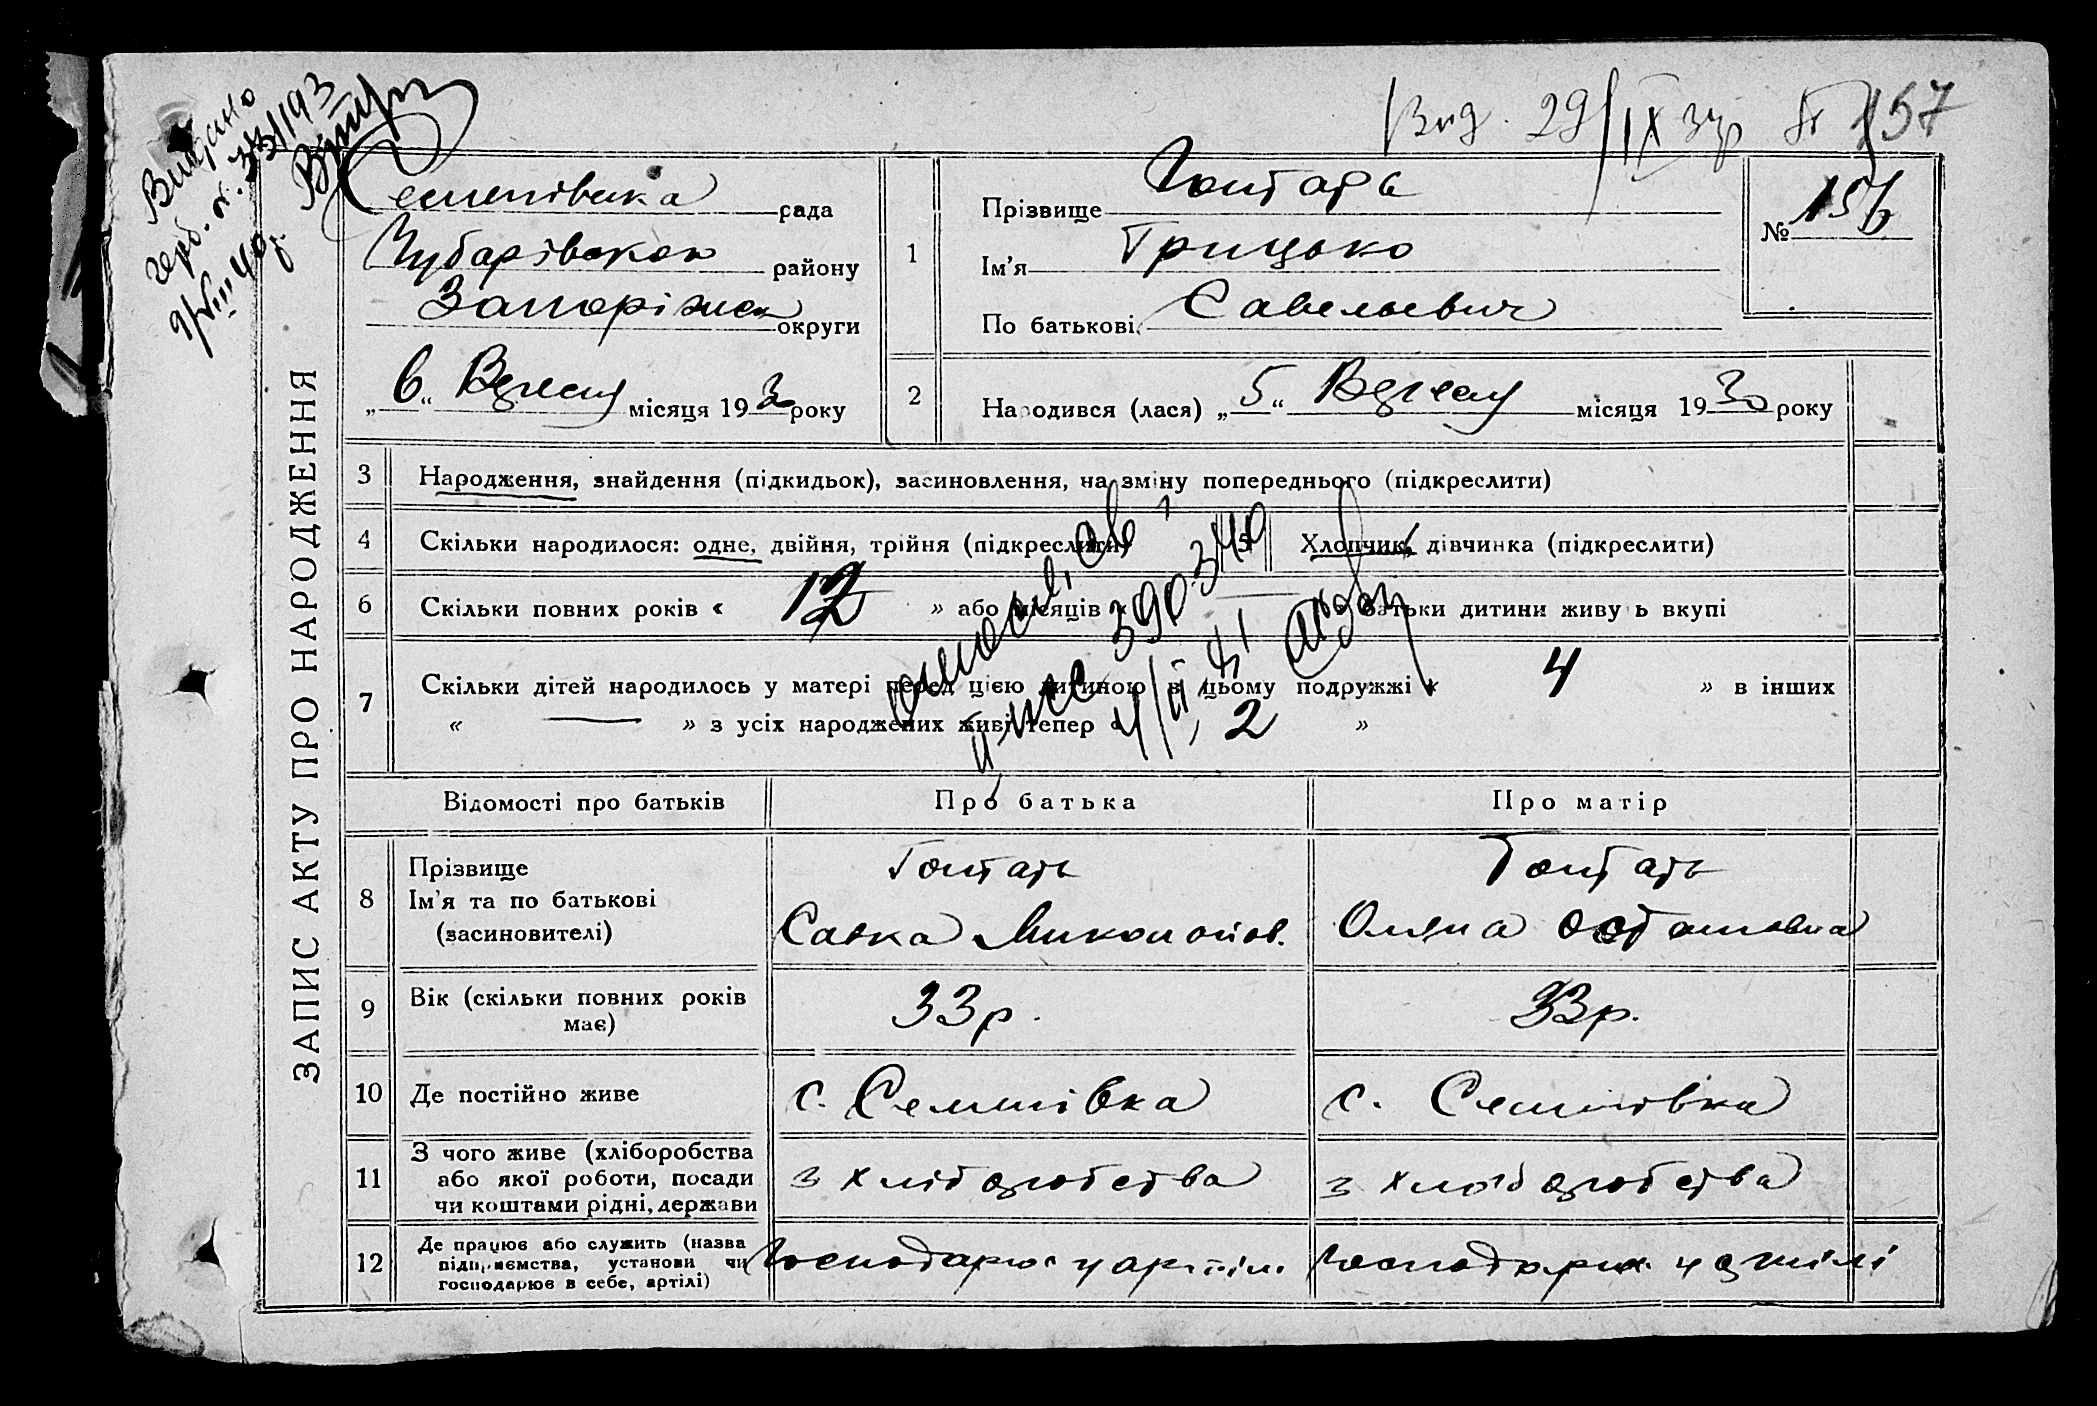 Видано
Вид. 29/IX 157
рада
Чубарівском району
Запоріжск округи
„6“ Вересня місяця 1930 року
1
Прізвище Гонтарь
Ім'я Грицько
По батькові Савельевич
№ 156
2
Народився (лася) „5“ Вересня місяця 1930 року
ЗАПИС АКТУ ПРО НАРОДЖЕННЯ
3 Народження, знайдення (підкидьок), засиновлення, на зміну попереднього (підкреслити)
4 Скільки народилося: одне, двійня, трійня (підкреслити) 5 Хлопчик, дівчинка (підкреслити)
6 Скільки повних років « 12 » або місяців « — » батьки дитини живуть вкупі
7 Скільки дітей народилось у матері перед цією дитиною в цьому подружжі « 4 » в інших
« — » з усіх народжених живі тепер « 2 »
Відомості про батьків Про батька Про матір
8 Прізвище Гонтарь Гонтарь
Ім'я та по батькові
(засиновителі) Савка Миколайов. Оляна Остаповна
9 Вік (скільки повних років має) 33 р. 33 р.
10 Де постійно живе с. Семенівка с. Семенівка
11 З чого живе (хліборобства з хліборобства з хліборобства
або якої роботи, посади
чи коштами рідні, держави
12 Де працює або служить (назва Господарює у артілі Господарює у артілі
підприємства, установи чи
господарює в себе, артілі)